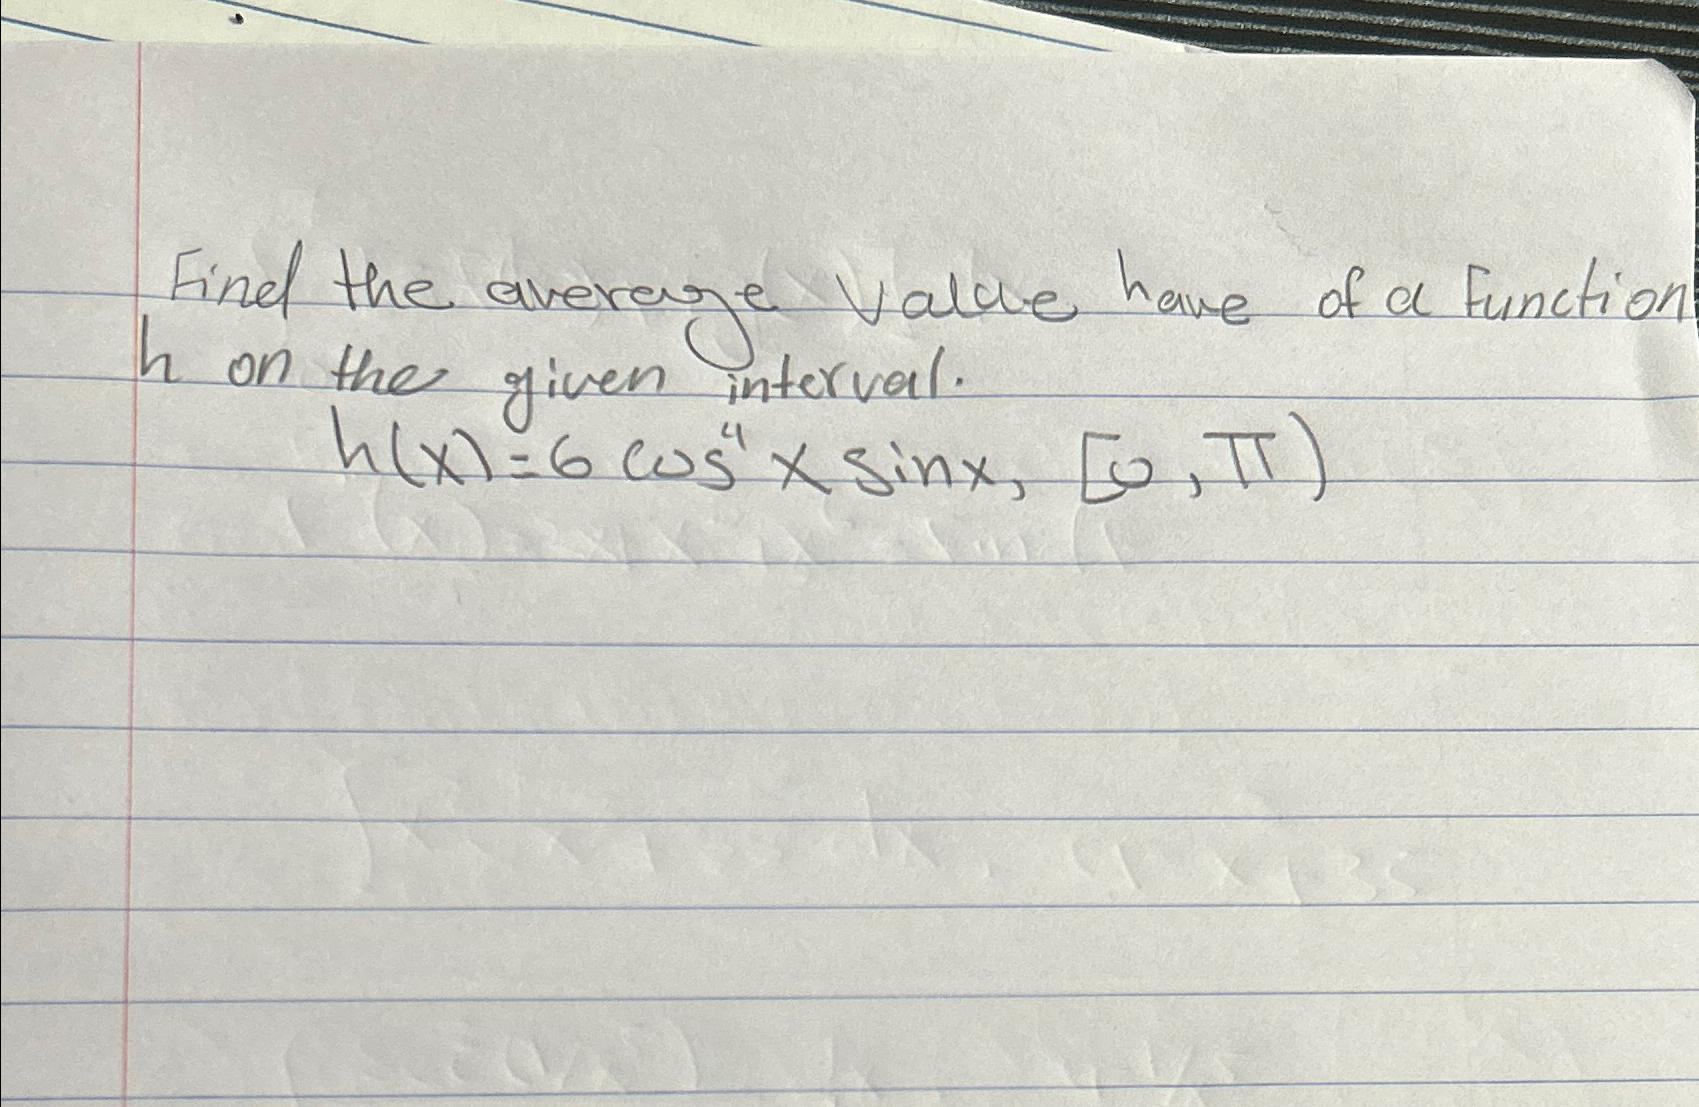 Find the average value have of a function
h on the given interval.
h(x)=6 cos⁴ x sinx, [0, π)